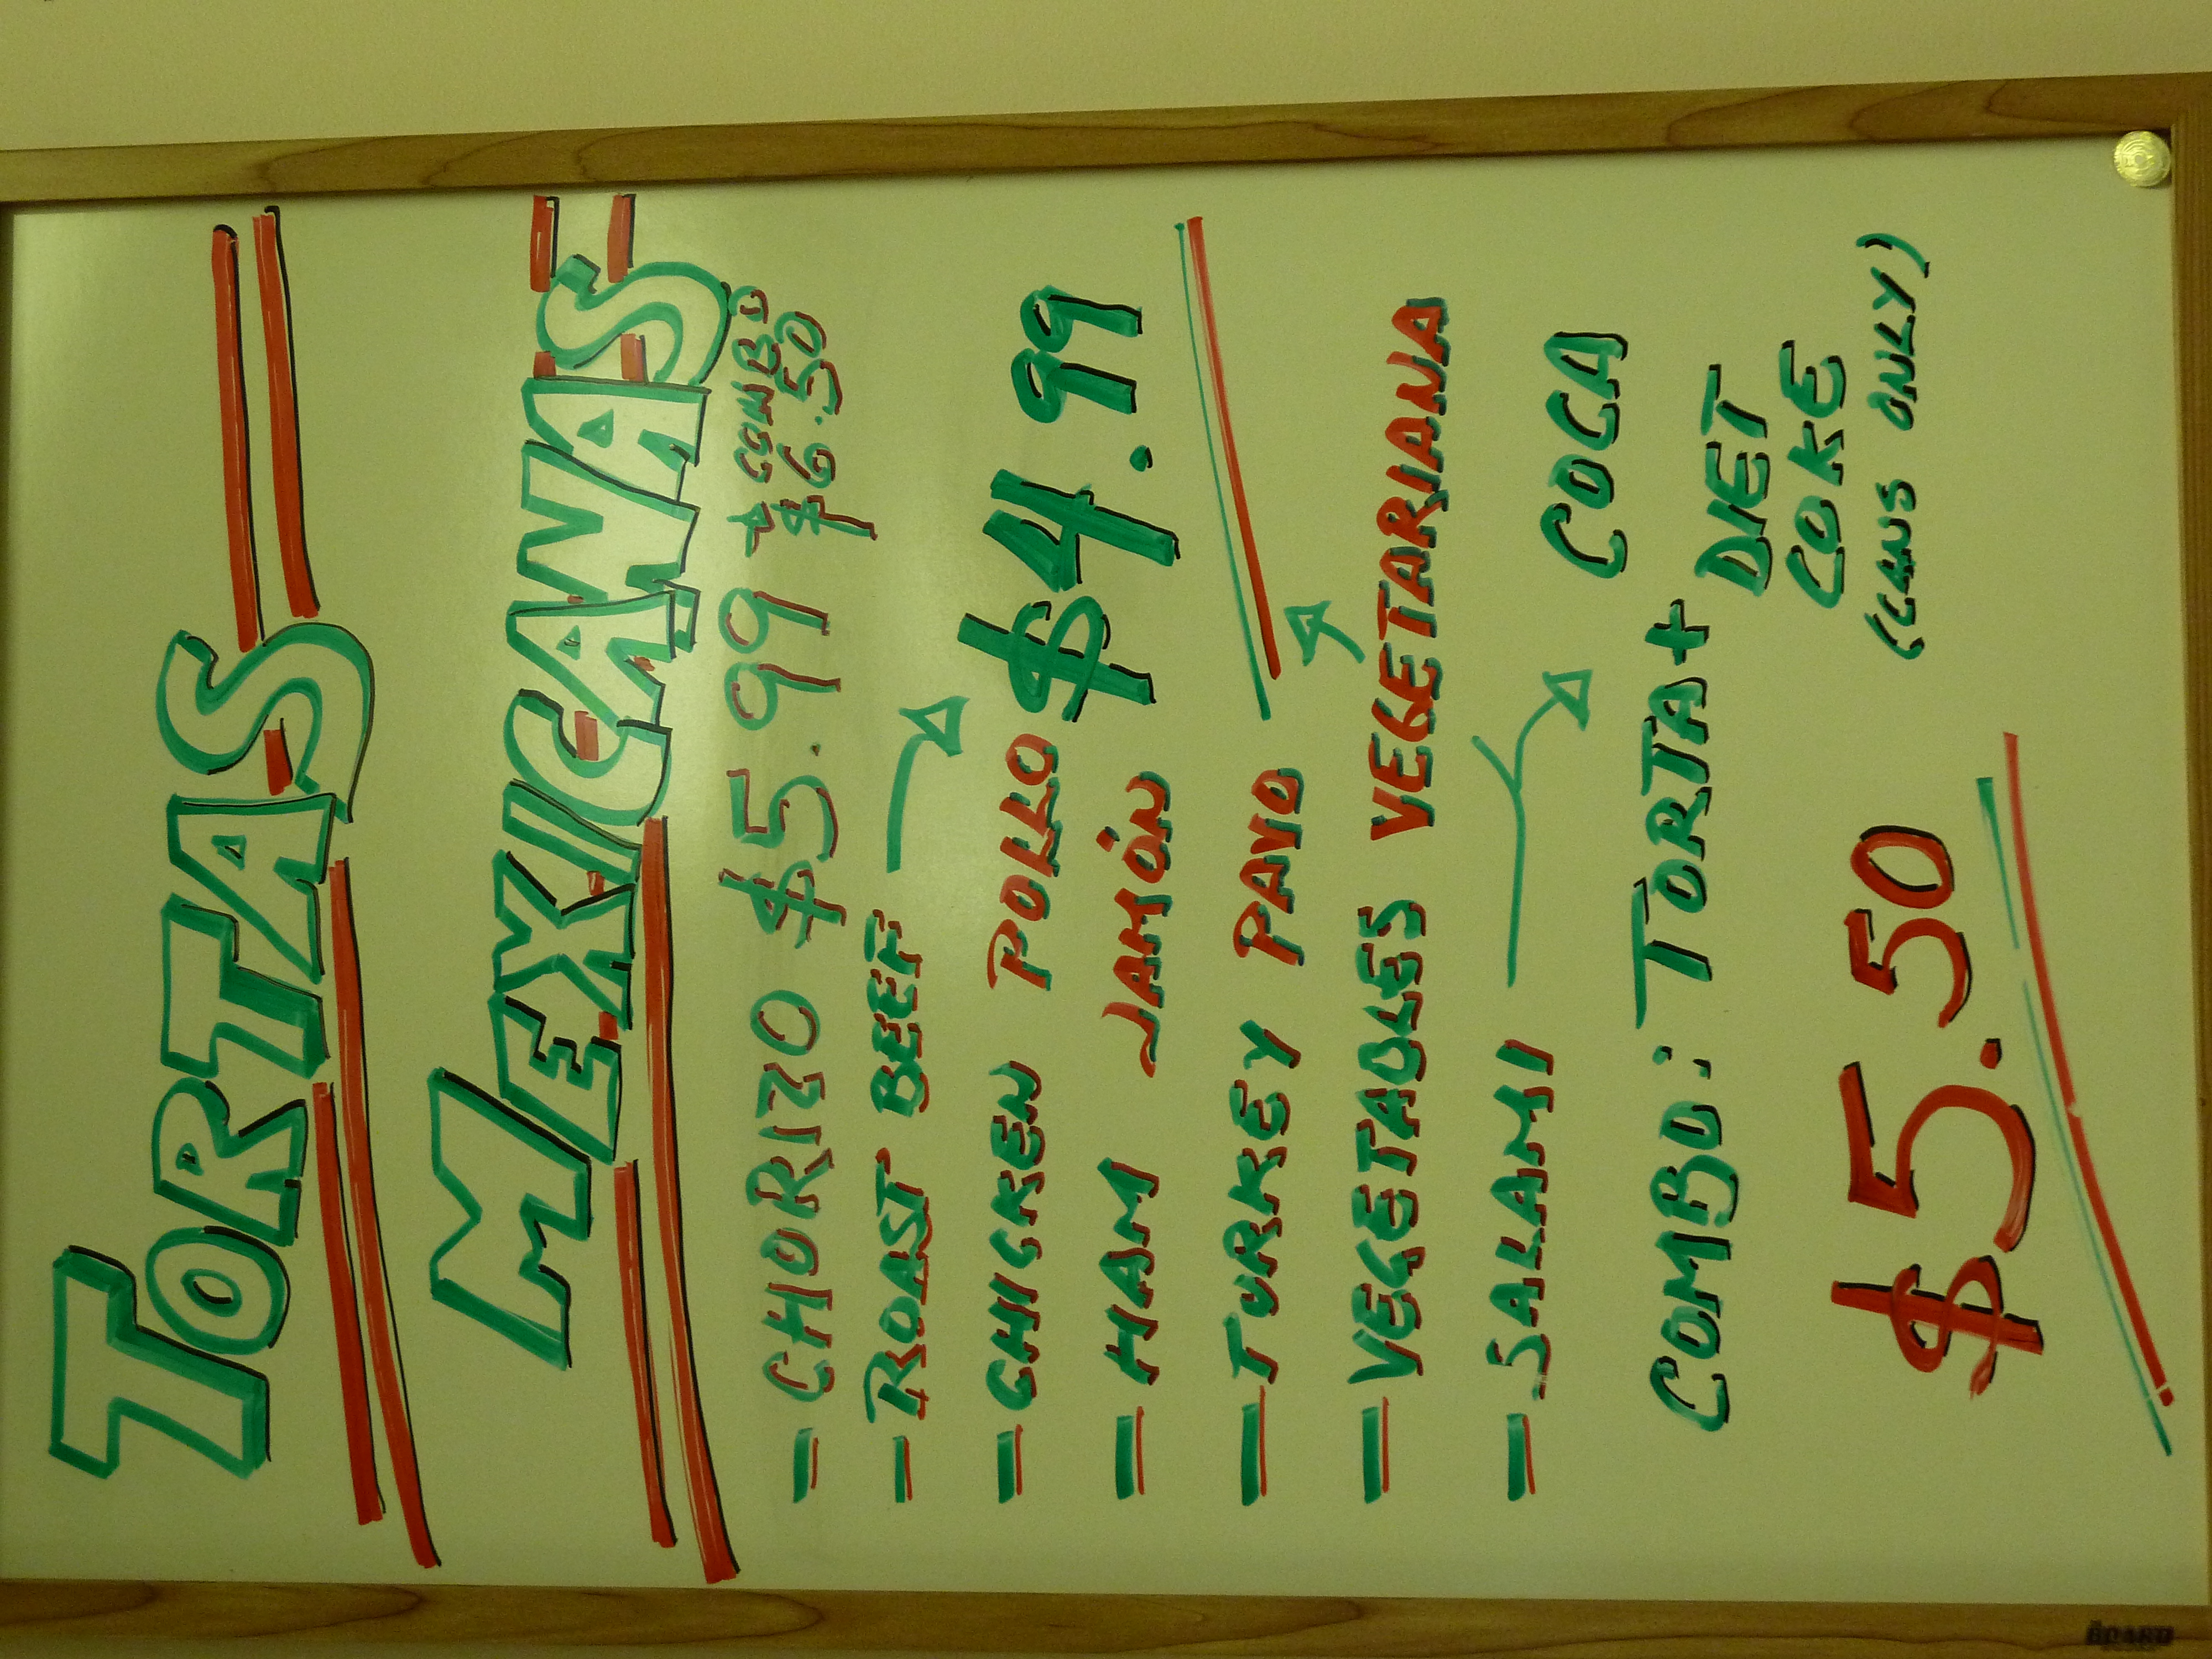 TORTAS
MEXICANAS
- CHORIZO $5.99 + COMBO $6.50
- ROAST BEEF
- CHICKEN POLLO $4.99
- HAM JAMÓN
- TURKEY PAVO
- VEGETABLES VEGETARIANA
- SALAMI
COCA
COMBO: TORTA + DIET
COKE
$5.50 (CANS ONLY)
BOARD